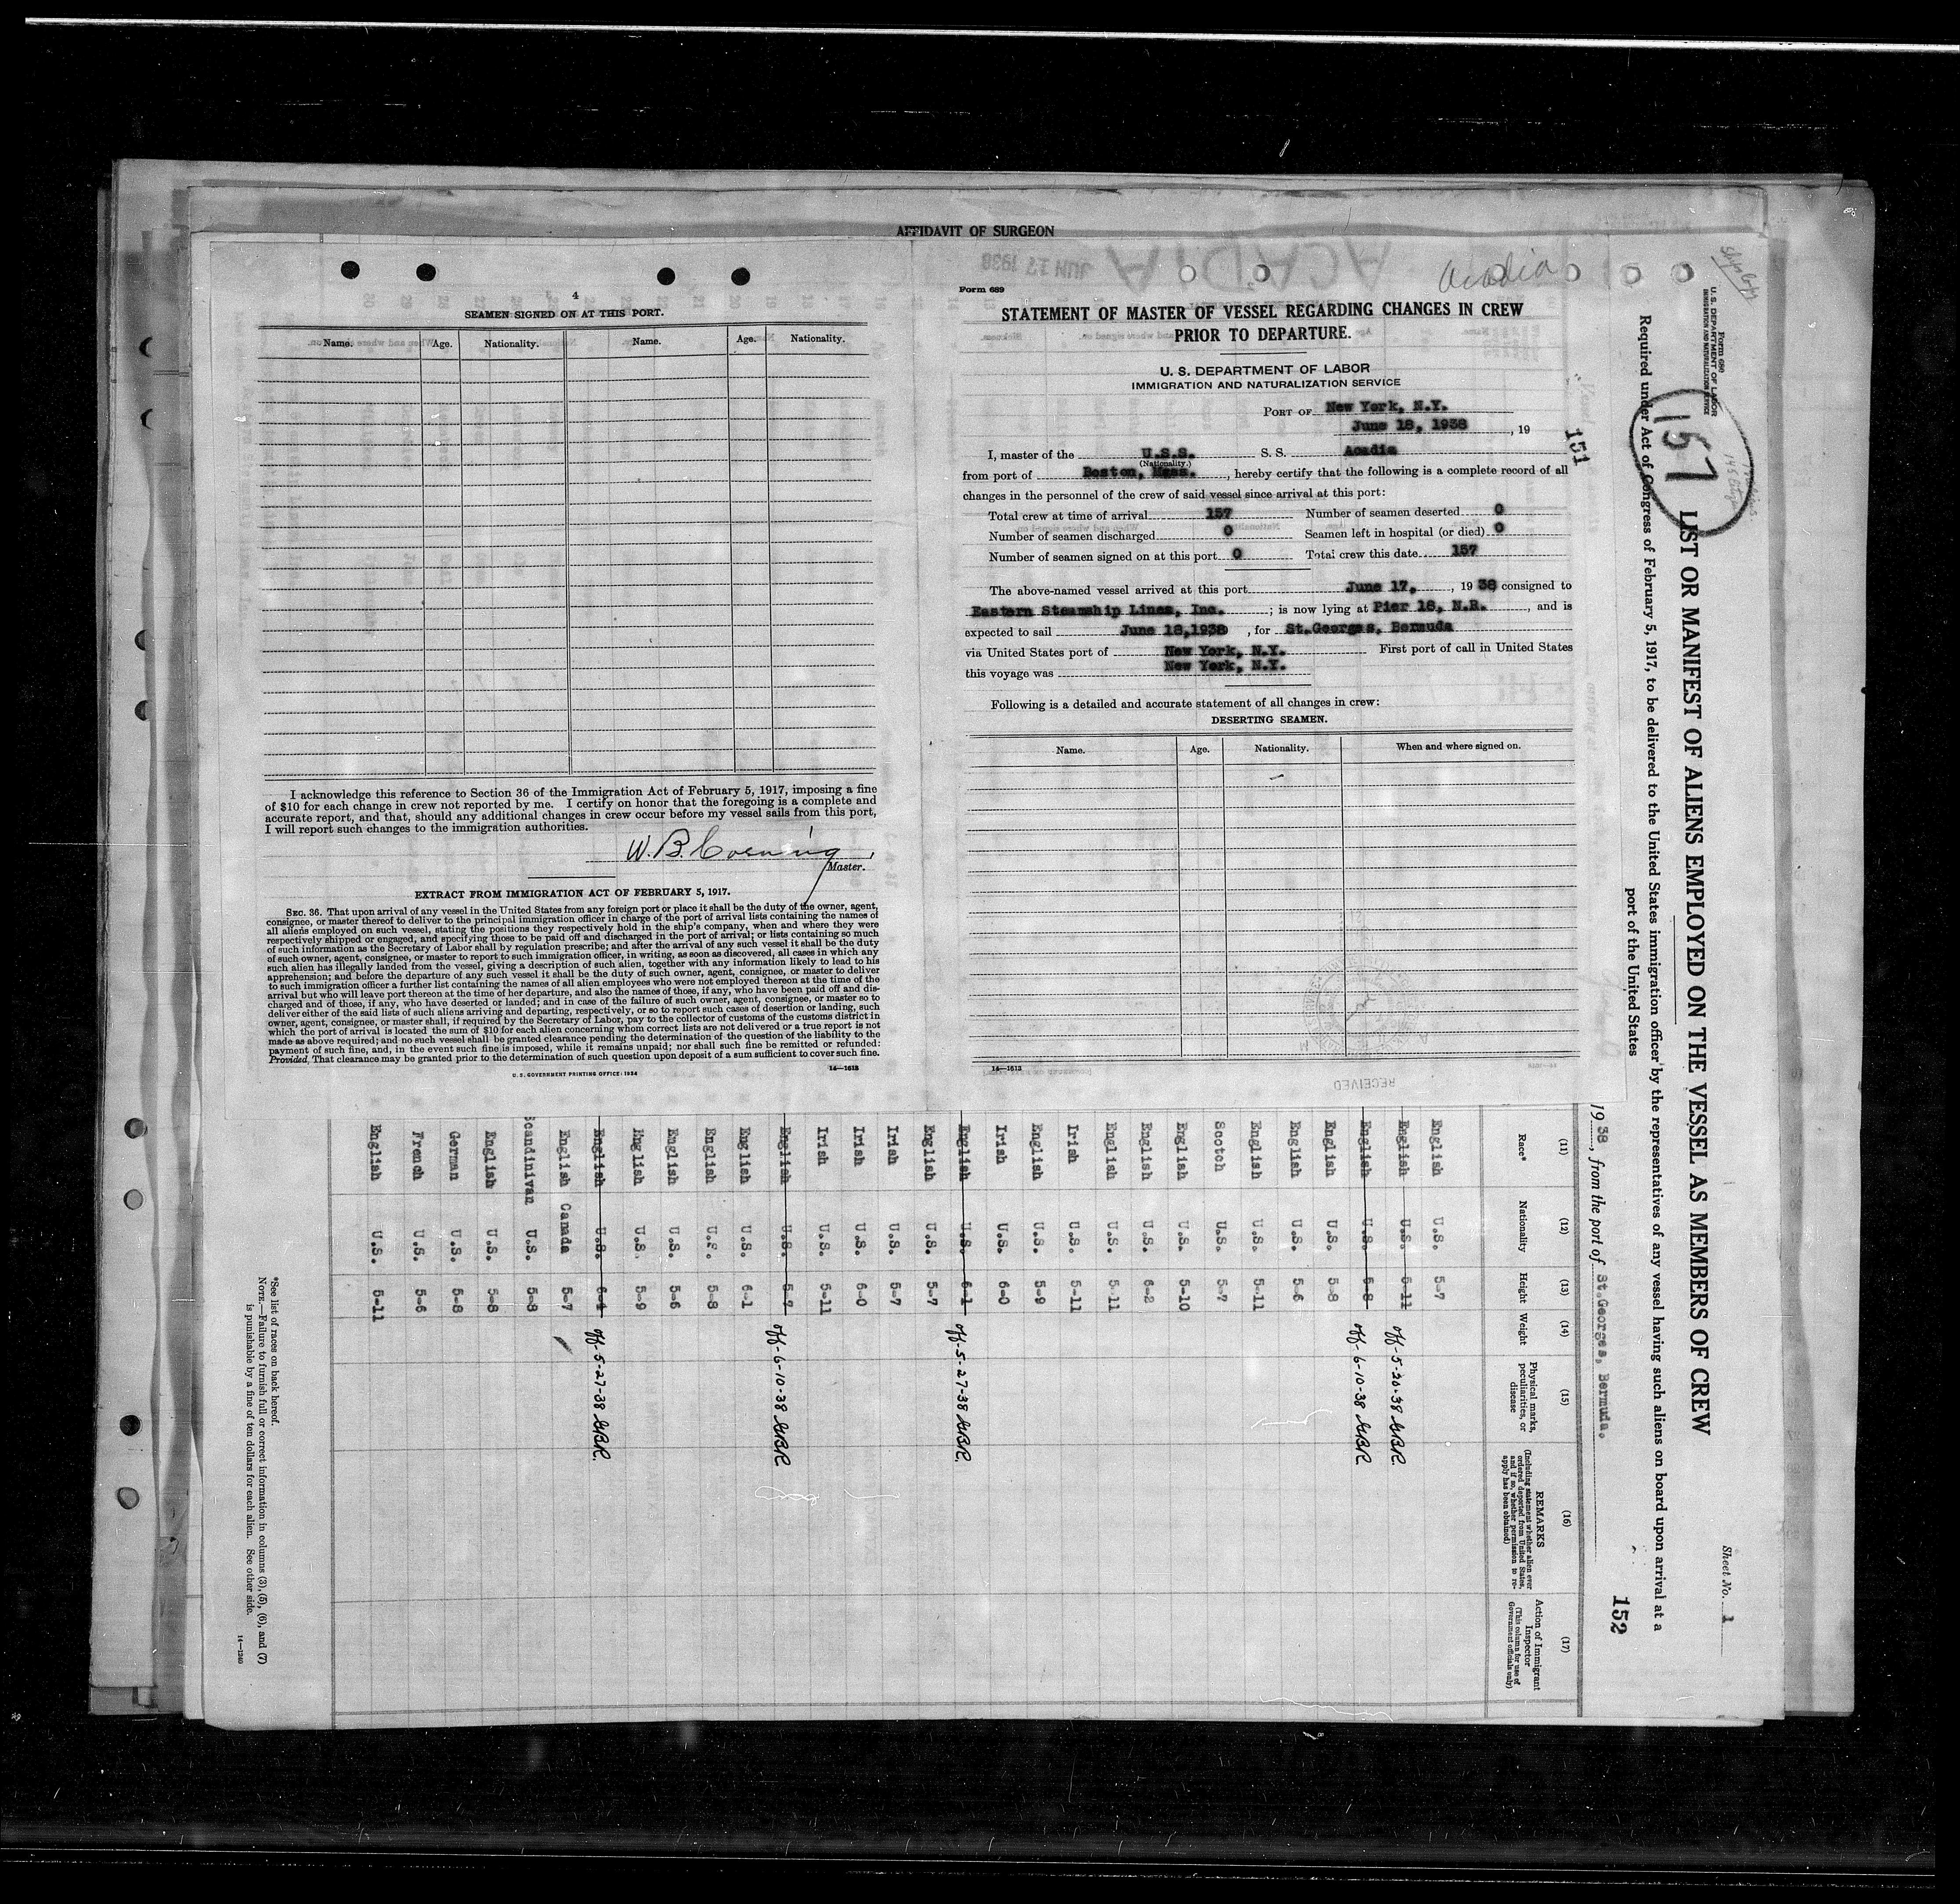 AFFIDAVIT OF SURGEON
4
SEAMEN SIGNED ON AT THIS PORT.
Name. Age. Nationality. Name. Age. Nationality.
I acknowledge this reference to Section 36 of the Immigration Act of February 5, 1917, imposing a fine
of $10 for each change in crew not reported by me. I certify on honor that the foregoing is a complete and
accurate report, and that, should any additional changes in crew occur before my vessel sails from this port,
I will report such changes to the immigration authorities.
W. B. Corning,
Master.
EXTRACT FROM IMMIGRATION ACT OF FEBRUARY 5, 1917.
SEC. 36. That upon arrival of any vessel in the United States from any foreign port or place it shall be the duty of the owner, agent,
consignee, or master thereof to deliver to the principal immigration officer in charge of the port of arrival lists containing the names of
all aliens employed on such vessel, stating the positions they respectively hold in the ship's company, when and where they were
respectively shipped or engaged, and specifying those to be paid off and discharged in the port of arrival; or lists containing so much
of such information as the Secretary of Labor shall by regulation prescribe; and after the arrival of any such vessel it shall be the duty
of such owner, agent, consignee, or master to report to such immigration officer, in writing, as soon as discovered, all cases in which any
such alien has illegally landed from the vessel, giving a description of such alien, together with any information likely to lead to his
apprehension; and before the departure of any such vessel it shall be the duty of such owner, agent, consignee, or master to deliver
to such immigration officer a further list containing the names of all alien employees who were not employed thereon at the time of the
arrival but who will leave port thereon at the time of her departure, and also the names of those, if any, who have been paid off and dis-
charged and of those, if any, who have deserted or landed; and in case of the failure of such owner, agent, consignee, or master so to
deliver either of the said lists of such aliens arriving and departing, respectively, or so to report such cases of desertion or landing, such
owner, agent, consignee, or master shall, if required by the Secretary of Labor, pay to the collector of customs of the customs district in
which the port of arrival is located the sum of $10 for each alien concerning whom correct lists are not delivered or a true report is not
made as above required; and no such vessel shall be granted clearance pending the determination of the question of the liability to the
payment of such fine, and, in the event such fine is imposed, while it remains unpaid; nor shall such fine be remitted or refunded:
Provided, That clearance may be granted prior to the determination of such question upon deposit of a sum sufficient to cover such fine.
U. S. GOVERNMENT PRINTING OFFICE: 1934
14—1613
Acadia
Form 689
STATEMENT OF MASTER OF VESSEL REGARDING CHANGES IN CREW
PRIOR TO DEPARTURE.
U. S. DEPARTMENT OF LABOR
IMMIGRATION AND NATURALIZATION SERVICE
PORT OF New York, N.Y.
June 18, 1938, 19
151
I, master of the U.S.S. S. S. Acadia
(Nationality.)
from port of Boston, Mass., hereby certify that the following is a complete record of all
changes in the personnel of the crew of said vessel since arrival at this port:
Total crew at time of arrival 157 Number of seamen deserted 0
Number of seamen discharged 0 Seamen left in hospital (or died) 0
Number of seamen signed on at this port 0 Total crew this date 157
The above-named vessel arrived at this port June 17, , 19 38 consigned to
Eastern Steamship Lines, Inc. ; is now lying at Pier 18, N.R. , and is
expected to sail June 18,1938 , for St.Georges, Bermuda
via United States port of New York, N.Y. First port of call in United States
this voyage was New York, N.Y.
Following is a detailed and accurate statement of all changes in crew:
DESERTING SEAMEN.
Name. Age. Nationality. When and where signed on.
14—1613
RECEIVED
Ships Copy
Form 680
U. S. DEPARTMENT OF LABOR
IMMIGRATION AND NATURALIZATION SERVICE
157
Sheet No. 1
LIST OR MANIFEST OF ALIENS EMPLOYED ON THE VESSEL AS MEMBERS OF CREW
Required under Act of Congress of February 5, 1917, to be delivered to the United States immigration officer by the representatives of any vessel having such aliens on board upon arrival at a
port of the United States
152
19 38, from the port of St.Georges, Bermuda.
(11) (12) (13) (14) (15) (16) (17)
Race* Nationality Height Weight Physical marks, peculiarities, or disease REMARKS (Including statement whether alien ever ordered deported from United States, and if so, whether permission to re-apply has been obtained) Action of Immigrant Inspector (This column for use of Government officials only)
English U.S. 5-7
English U.S. 5-11 off-5-20-38 GBR.
English U.S. 5-8 off-6-10-38 GBR
English U.S. 5-8
English U.S. 5-6
English U.S. 5-11
Scotch U.S. 5-7
English U.S. 5-10
English U.S. 6-2
English U.S. 5-11
Irish U.S. 5-11
English U.S. 5-9
Irish U.S. 6-0
English U.S. 6-1 off-5-27-38 GBR.
English U.S. 5-7
Irish U.S. 5-7
Irish U.S. 6-0
Irish U.S. 5-11
English U.S. 5-7 off-6-10-38 GBR
English U.S. 6-1
English U.S. 5-8
English U.S. 5-6
English U.S. 5-9
English U.S. 6-1 off-5-27-38 GBR.
English Canada 5-7
Scandinivan U.S. 5-8
English U.S. 5-8
German U.S. 5-8
French U.S. 5-6
English U.S. 5-11
*See list of races on back hereof.
NOTE.—Failure to furnish full or correct information in columns (3), (5), (6), and (7)
is punishable by a fine of ten dollars for each alien. See other side.
14—1240